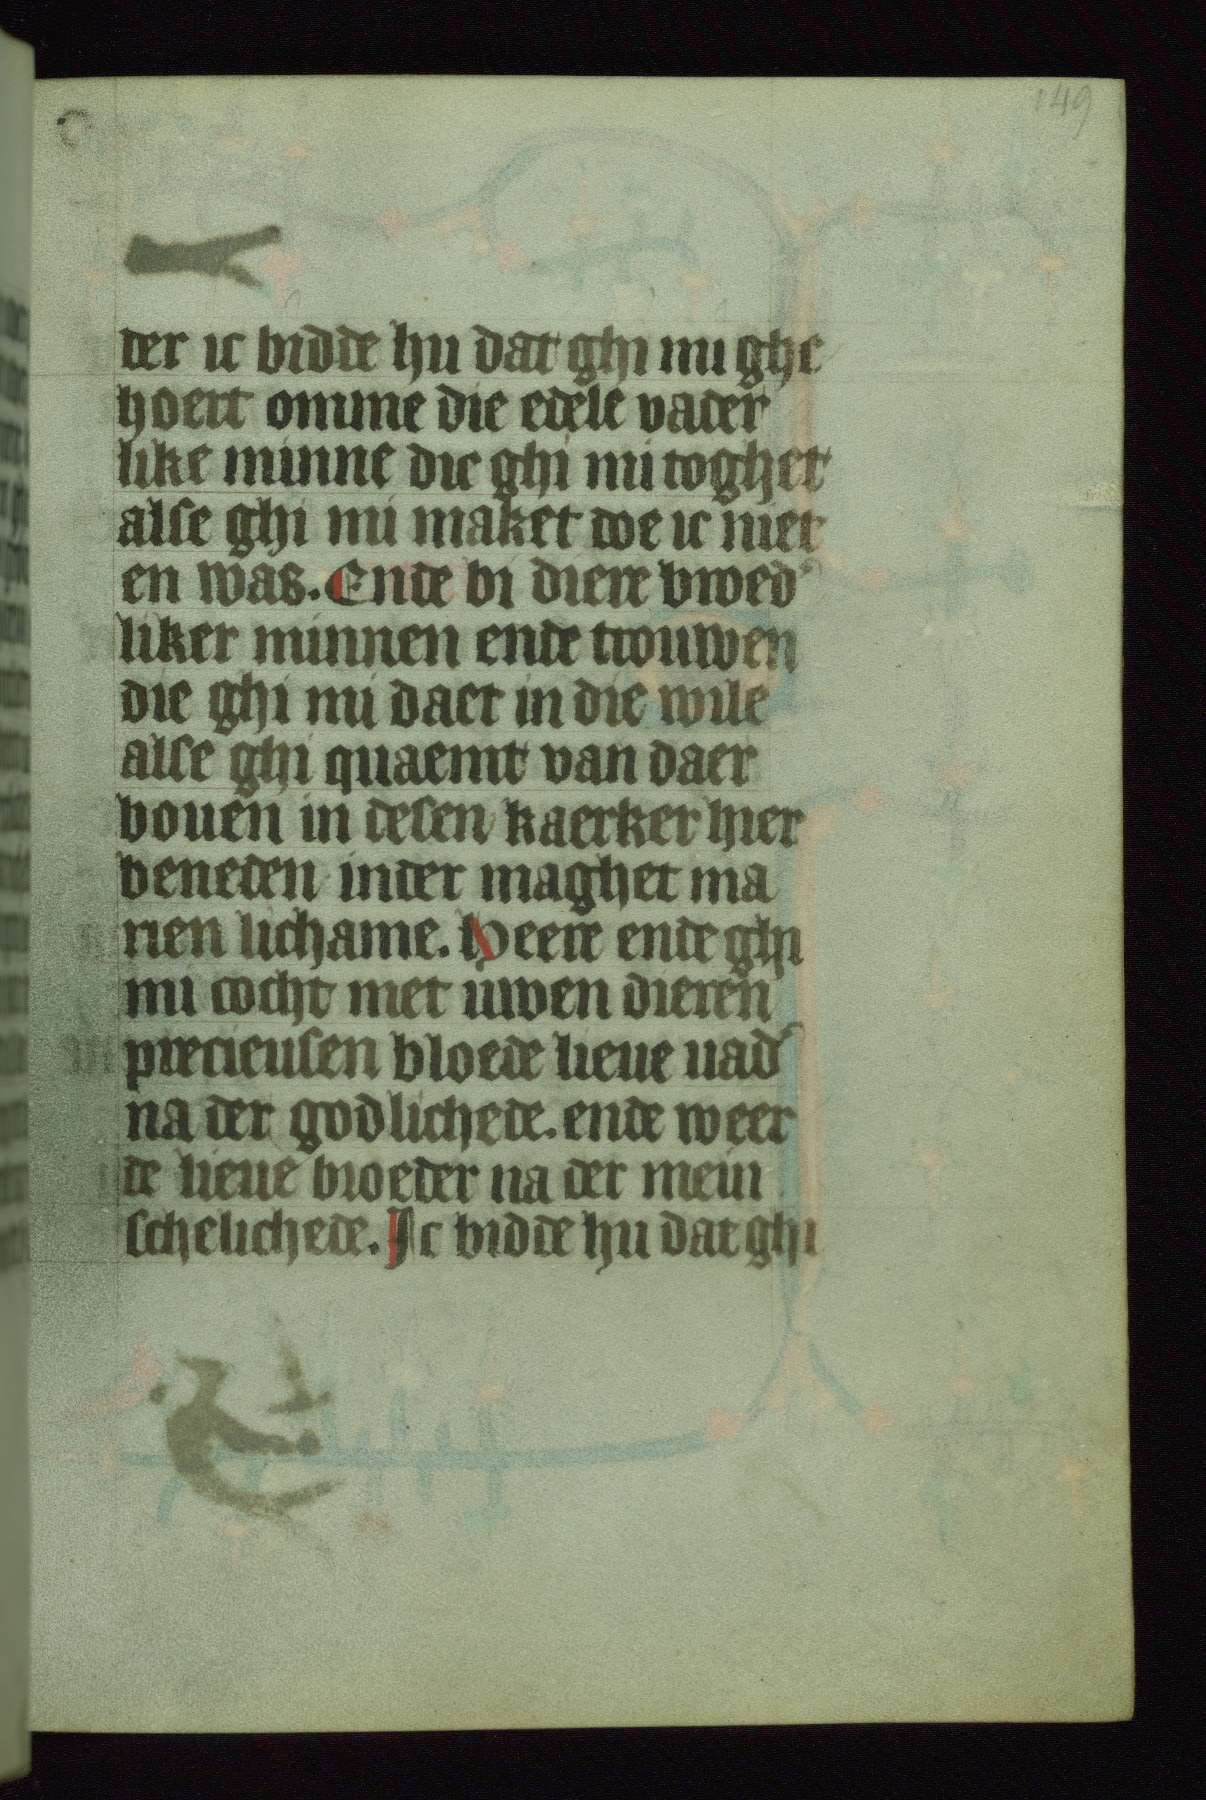 149
der ic bidde hu dat ghi mi ghe
hoert omme die edele vader
like minne die ghi mi toghet
alse ghi mi maket doe ic niet
en was. Ende bi diere broed'
liker minnen ende trouwen
die ghi mi daet in die wile
alse ghi quaemt van daer
bouen in desen kaerker hier
beneden inder maghet ma
rien lichame. Heere ende ghi
mi cocht met uwen dieren
precieusen bloede lieue uad'
na der godlichede. ende weer
de lieue broeder na der mein
schelichede. Ic bidde hu dat ghi